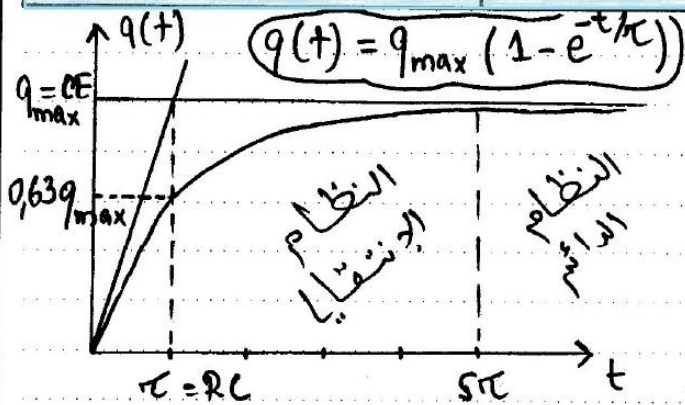 q(t)
q(t) = qmax (1 - e^-t/τ)
qmax = CE
0,63qmax
النظام
الإنتقالي
النظام
الدائم
τ = RC
5τ
t